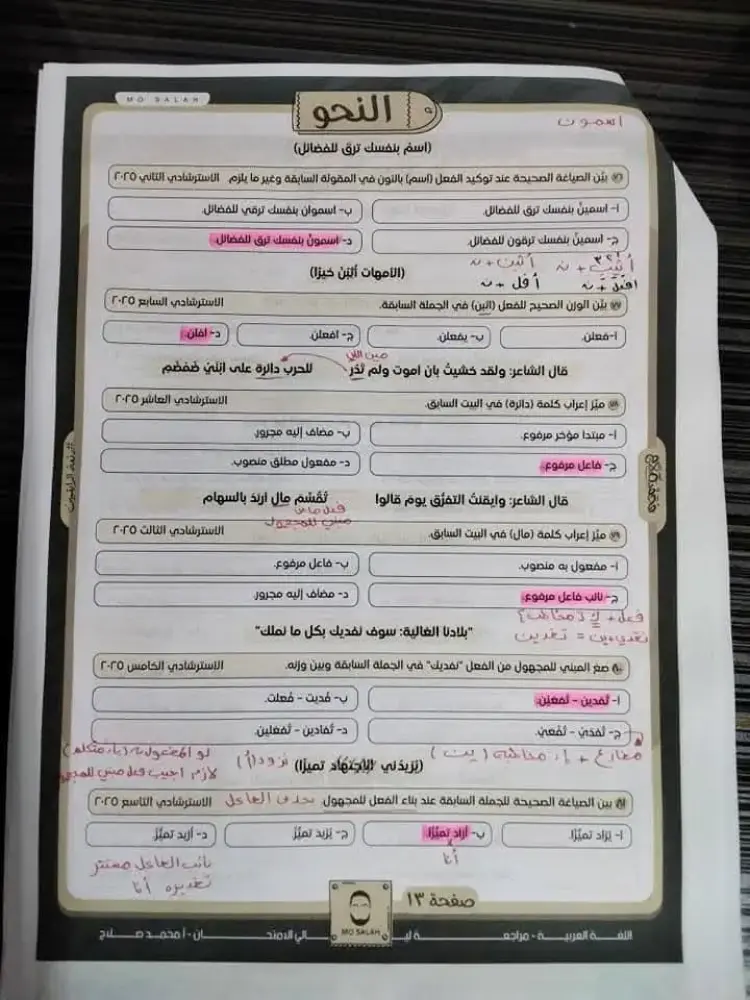 MO SALAH
النحو
اسمون
(اسمُ بنفسك ترق للفضائل)
بيّن الصياغة الصحيحة عند توكيد الفعل (اسم) بالنون في المقولة السابقة وغير ما يلزم الاسترشادي الثاني ٢٠٢٥
أ- اسمينّ بنفسك ترق للفضائل.
ب- اسموان بنفسك ترقي للفضائل.
ج- اسمينّ بنفسك ترقون للفضائل.
د- اسمونّ بنفسك ترق للفضائل.
(الأمهات أثبْنَ خيرًا)
أفل + ن
بيّن الوزن الصحيح للفعل (أثبن) في الجملة السابقة. الاسترشادي السابع ٢٠٢٥
أ- فعلن.
ب- يفعلن.
ج- افعلن.
د- أفلن.
عين الكلمة
قال الشاعر: ولقد خشيتُ بأن أموت ولم تَدُر للحرب دائرة على ابْنَيْ ضَمْضَمِ
ميّز إعراب كلمة (دائرة) في البيت السابق. الاسترشادي العاشر ٢٠٢٥
أ- مبتدأ مؤخر مرفوع.
ب- مضاف إليه مجرور.
ج- فاعل مرفوع.
د- مفعول مطلق منصوب.
قال الشاعر: وأيقنتُ التفرُّق يومَ قالوا تُقُسِّمَ مال أربَدَ بالسهام
فعل ماض
مبني للمجهول
ميّز إعراب كلمة (مال) في البيت السابق. الاسترشادي الثالث ٢٠٢٥
أ- مفعول به منصوب.
ب- فاعل مرفوع.
ج- نائب فاعل مرفوع.
د- مضاف إليه مجرور.
فعل + ك (مخاطب)
= تفدين
"بلادنا الغالية: سوف نفديك بكل ما نملك"
صغ المبني للمجهول من الفعل "نفديك" في الجملة السابقة وبين وزنه. الاسترشادي الخامس ٢٠٢٥
أ- تُفدين - تُفعَين.
ب- فُديت - فُعلت.
ج- تُفدَي - تُفعَي.
د- تُفادين - تُفعلين.
مضارع + ى مخاطبة (ين)
لو المفعول به (ياء متكلم)
لازم أجيب فعل مبني للمجهول
نزود (أ)
(يَزيدني الاجتهاد تميزًا)
بين الصياغة الصحيحة للجملة السابقة عند بناء الفعل للمجهول. بحذف الفاعل الاسترشادي التاسع ٢٠٢٥
أ- يُزاد تميزًا.
ب- أُزاد تميزًا.
ج- يُزيد تميزٌ.
د- أزيد تميزٌ.
أنا
نائب الفاعل مستتر
تقديره أنا
صفحة ١٣
MO SALAH